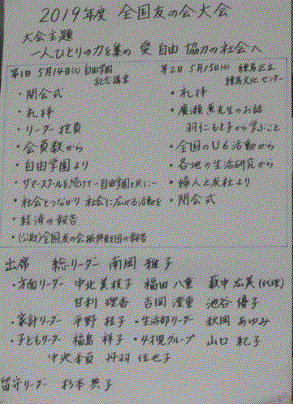 2019年度 全国友の会大会
大会主題
一人ひとりの力を集め 愛 自由 協力の社会へ
第1日 5月14日(火) 自由学園 記念講堂
・開会式
・礼拝
・リーダー投票
・会員数から
・自由学園より
・サマースクールを続けて―自由学園と共に―
・社会とつながり 社会に広がる活動を
・経済の報告
・(公財)全国友の会振興財団の報告
第2日 5月15日(水) 練馬区立 練馬文化センター
・礼拝
・廣瀬薫先生のお話
羽仁もと子から学ぶこと
・全国のU6活動から
・各地の生活研究から
・婦人之友社より
・閉会式
出席 総リーダー 南岡 雅子
・方面リーダー 中北 美枝子 福田 八重 薮中 宏美(代理)
甘利 理香 吉岡 澄重 池谷 優子
・家計リーダー 平野 桂子 ・生活部リーダー 秋岡 あゆみ
・子どもリーダー 福島 祥子 ・4才児グループ 山口 紀子
中央委員 丹羽 佳也子
留守リーダー 杉本 典子